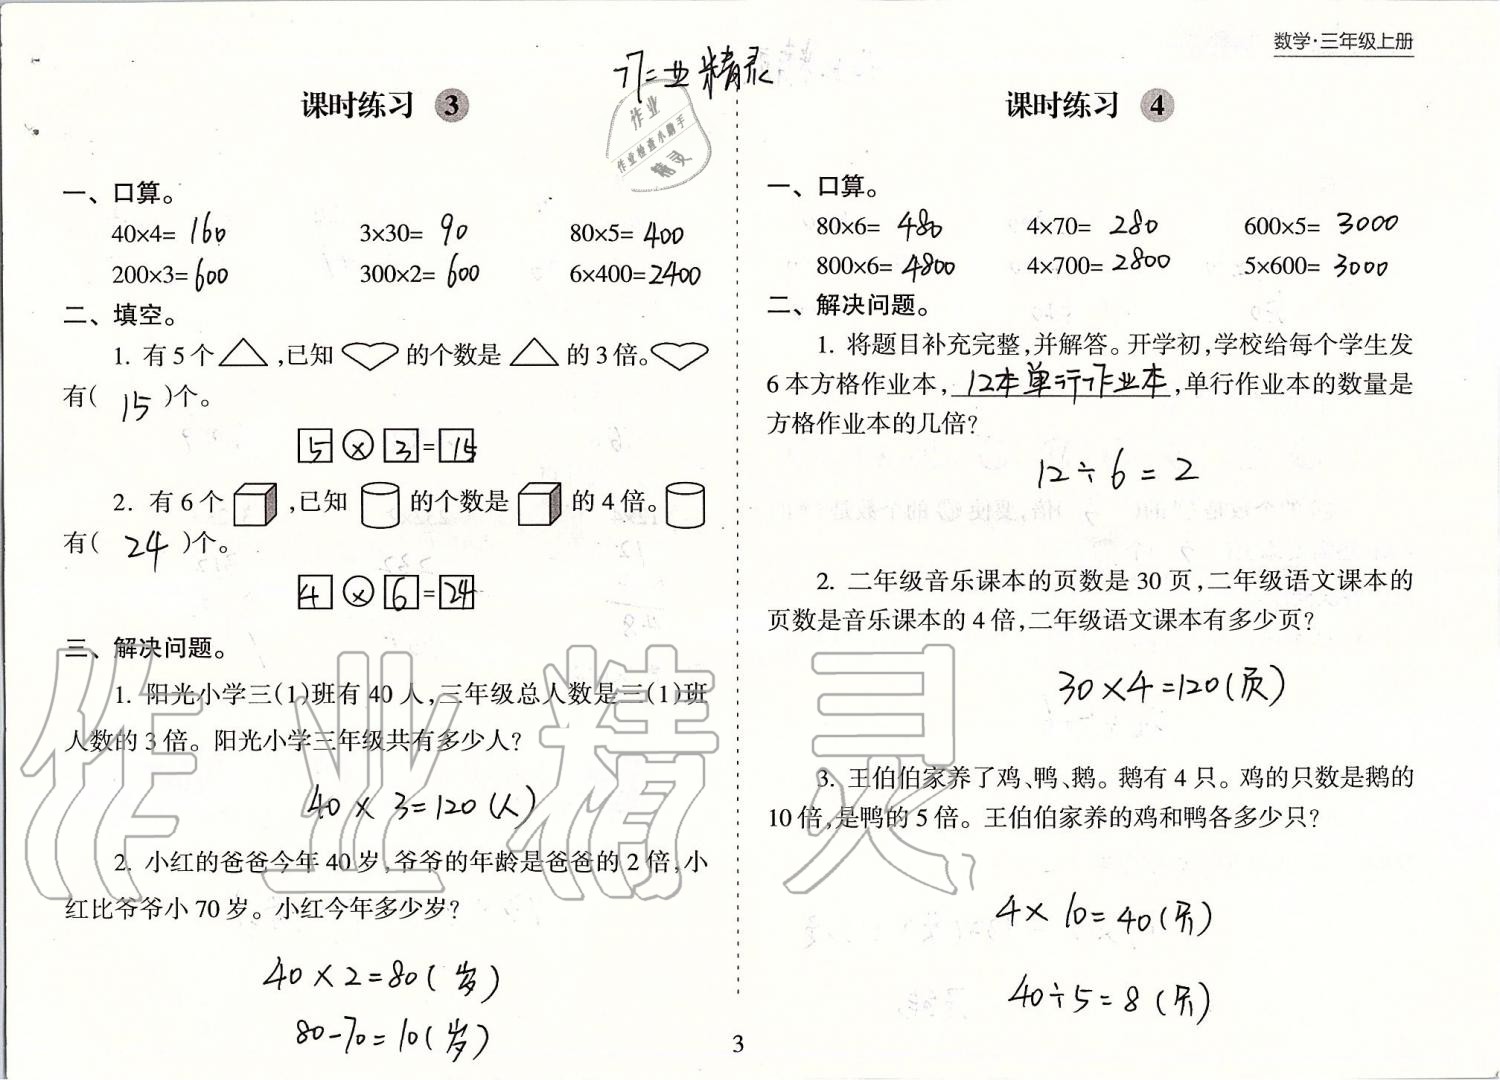 数学·三年级上册
作业精灵
作业
作业检查小助手
精灵
课时练习 3
一、口算。
40×4= 160 3×30= 90 80×5= 400
200×3= 600 300×2= 600 6×400= 2400
二、填空。
1. 有5个 ,已知 的个数是 的3倍。
有( 15 )个。
5 × 3 = 15
2. 有6个 ,已知 的个数是 的4倍。
有( 24 )个。
4 × 6 = 24
三、解决问题。
1. 阳光小学三(1)班有40人,三年级总人数是三(1)班
人数的3倍。阳光小学三年级共有多少人?
40 × 3 = 120 (人)
2. 小红的爸爸今年40岁,爷爷的年龄是爸爸的2倍,小
红比爷爷小70岁。小红今年多少岁?
40 × 2 = 80 (岁)
80 - 70 = 10 (岁)
课时练习 4
一、口算。
80×6= 480 4×70= 280 600×5= 3000
800×6= 4800 4×700= 2800 5×600= 3000
二、解决问题。
1. 将题目补充完整,并解答。开学初,学校给每个学生发
6本方格作业本, 12本单行作业本 ,单行作业本的数量是
方格作业本的几倍?
12 ÷ 6 = 2
2. 二年级音乐课本的页数是30页,二年级语文课本的
页数是音乐课本的4倍,二年级语文课本有多少页?
30 × 4 = 120 (页)
3. 王伯伯家养了鸡、鸭、鹅。鹅有4只。鸡的只数是鹅的
10倍,是鸭的5倍。王伯伯家养的鸡和鸭各多少只?
4 × 10 = 40 (只)
40 ÷ 5 = 8 (只)
3
作业精灵